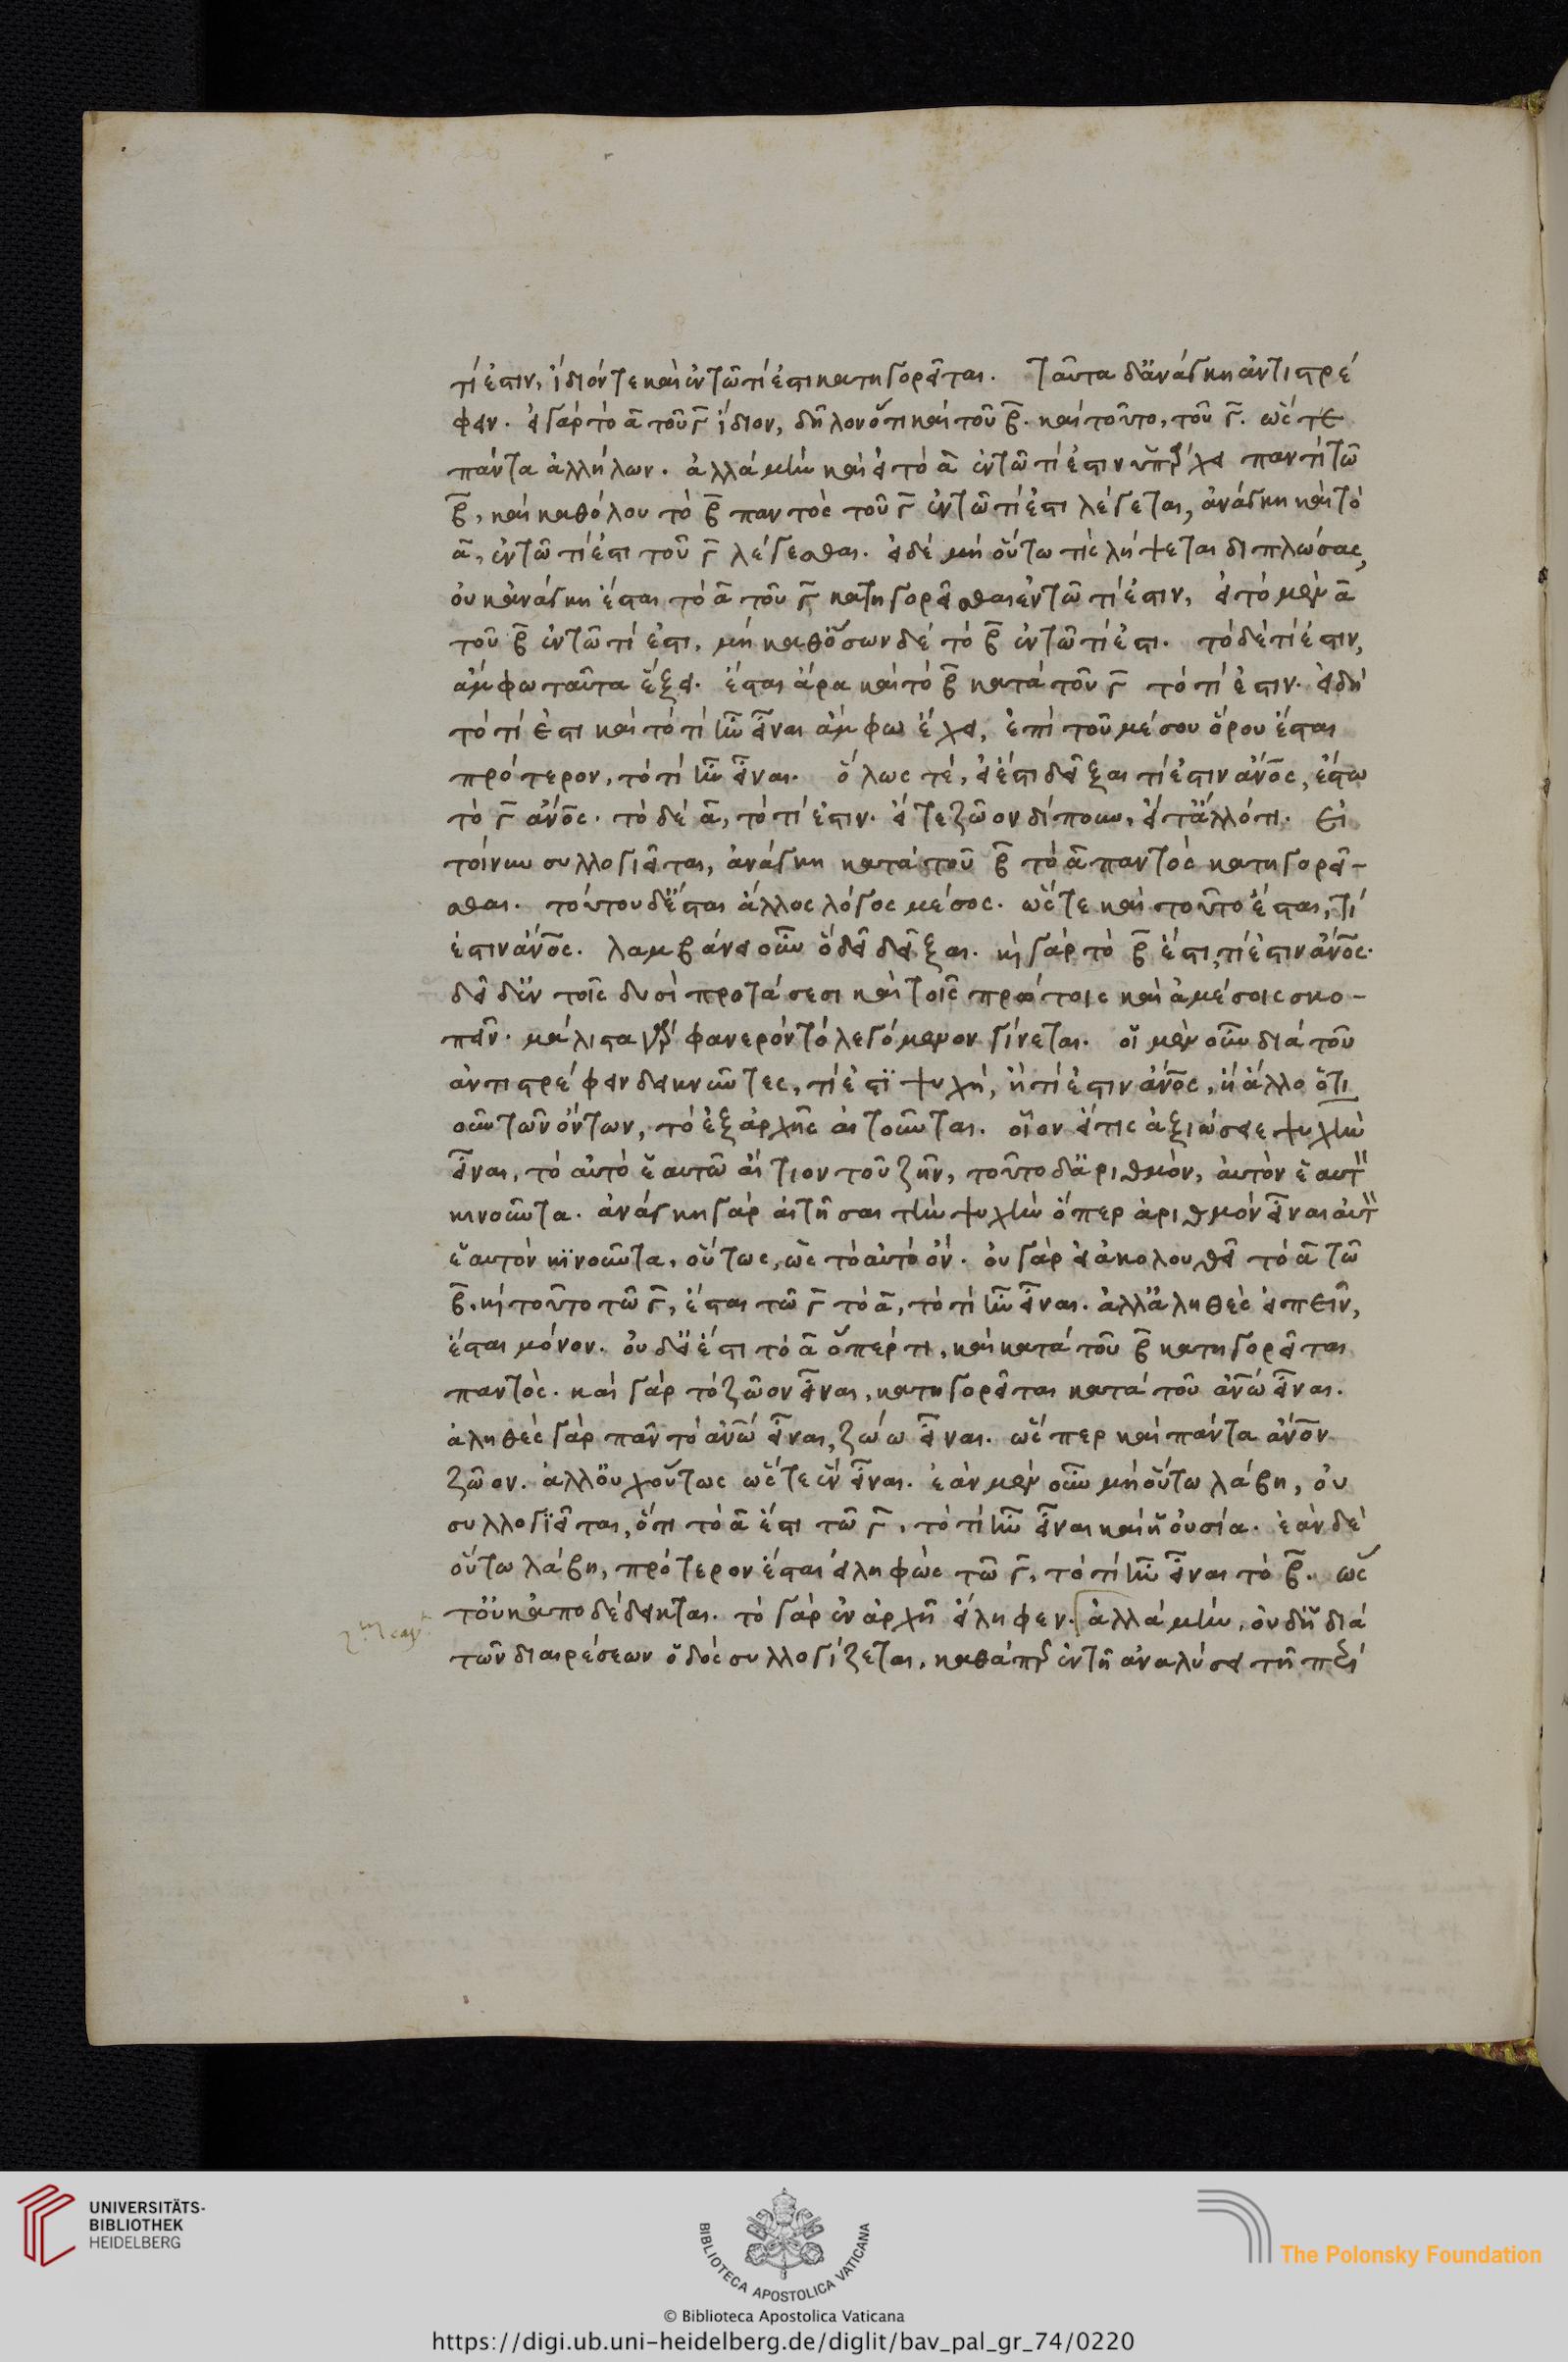 τί ἐστιν, ἴδιόν τε καὶ ἐν τῶ τί ἐστι κατηγορεῖται. ταῦτα δ' ἀνάγκη ἀντιστρέ
φειν. εἰ γὰρ τὸ α τοῦ γ ἴδιον, δῆλον ὅτι καὶ τοῦ β. καὶ τοῦτο, τοῦ γ. ὥστε
πάντα ἀλλήλων. ἀλλὰ μὴν καὶ εἰ τὸ α ἐν τῶ τί ἐστιν ὑπάρχει παντὶ τῶ
β, καὶ καθόλου τὸ β παντὸς τοῦ γ ἐν τῶ τί ἐστι λέγεται, ἀνάγκη καὶ τὸ
α, ἐν τῶ τί ἐστι τοῦ γ λέγεσθαι. εἰ δὲ μὴ οὕτω τὶς λήψεται διπλώσας,
οὐκ ἀνάγκη ἔσται τὸ α τοῦ γ κατηγορεῖσθαι ἐν τῶ τί ἐστιν, εἰ τὸ μὲν α
τοῦ β ἐν τῶ τί ἐστι, μὴ καθ' ὅσων δὲ τὸ β ἐν τῶ τί ἐστι. τὸ δὲ τί ἐστιν,
ἄμφω ταῦτα ἕξει. ἔσται ἄρα καὶ τὸ β κατὰ τοῦ γ τὸ τί ἐστιν. εἰ δὴ
τὸ τί ἐστι καὶ τὸ τί ἦν εἶναι ἄμφω ἔχει, ἐπὶ τοῦ μέσου ὅρου ἔσται
πρότερον, τὸ τί ἦν εἶναι. ὅλως τέ, εἰ ἔστι δεῖξαι τί ἐστιν ἄνος, ἔστω
τὸ γ ἄνος. τὸ δὲ α, τὸ τί ἐστιν. εἴτε ζῶον δίπουν, εἴτ' ἄλλό τι. Εἰ
τοίνυν συλλογιεῖται, ἀνάγκη κατὰ τοῦ β τὸ α παντὸς κατηγορεῖ-
σθαι. τούτου δ' ἔσται ἄλλος λόγος μέσος. ὥστε καὶ τοῦτο ἔσται, τί
ἐστιν ἄνος. λαμβάνει οὖν ὃ δεῖ δεῖξαι. κὶ γὰρ τὸ β ἔστι, τί ἐστιν ἄνος.
δεῖ δ' ἐν τοῖς δυσὶ προτάσεσι καὶ τοῖς πρώτοις καὶ ἀμέσοις σκο-
πεῖν. μάλιστα γὰρ φανερὸν τὸ λεγόμενον γίνεται. οἱ μὲν οὖν διὰ τοῦ
ἀντιστρέφειν δεικνῦντες, τί ἐστι ψυχή, ἢ τί ἐστιν ἄνος, ἢ ἄλλο ὅτι
οῦν τῶν ὄντων, τὸ ἐξ ἀρχῆς αἰτοῦνται. οἷον εἴτις ἀξιώσειε ψυχὴν
εἶναι, τὸ αὐτὸ ἑαυτῶ αἴτιον τοῦ ζῆν, τοῦτο δ' ἀριθμὸν, αὐτὸν ἑαυτ
κινοῦντα. ἀνάγκη γὰρ αἰτῆσαι τὴν ψυχὴν ὅπερ ἀριθμὸν εἶναι αὐτ
ἑαυτὸν κινοῦντα, οὕτως, ὡς τὸ αὐτὸ ὄν. οὐ γὰρ εἰ ἀκολουθεῖ τὸ α τῶ
β, κὶ τοῦτο τῶ γ, ἔσται τῶ γ τὸ α, τὸ τί ἦν εἶναι. ἀλλ' ἀληθὲς εἰπεῖν,
ἔσται μόνον. οὐδ' εἰ ἔστι τὸ α ὅπέρ τι, καὶ κατὰ τοῦ β κατηγορεῖται
παντός. καὶ γὰρ τὸ ζῶον εἶναι, κατηγορεῖται κατὰ τοῦ ἀνω εἶναι.
ἀληθὲς γὰρ πᾶν τὸ ἀνω εἶναι, ζώω εἶναι. ὥσπερ καὶ πάντα ἄνον
ζῶον. ἀλλ' οὐχ οὕτως ὥστε ἓν εἶναι. ἐὰν μὲν οὖν μὴ οὕτω λάβη, οὐ
συλλογιεῖται, ὅτι τὸ α ἐστι τῶ γ, τὸ τί ἦν εἶναι καὶ ἡ οὐσία. ἐὰν δὲ
οὕτω λάβη, πρότερον ἔσται εἰληφὼς τῶ γ, τὸ τί ἦν εἶναι τὸ β. ὥς
τ' οὐκ ἀποδέδεικται. τὸ γὰρ ἐν ἀρχῆ εἴληφεν. ἀλλὰ μὴν, οὐδ' ἡ διὰ
τῶν διαιρέσεων ὁδὸς συλλογίζεται, καθάπερ ἐν τῆ ἀναλύσει τῆ περὶ
UNIVERSITÄTS-
BIBLIOTHEK
HEIDELBERG
BIBLIOTECA APOSTOLICA VATICANA
The Polonsky Foundation
© Biblioteca Apostolica Vaticana
https://digi.ub.uni-heidelberg.de/diglit/bav_pal_gr_74/0220